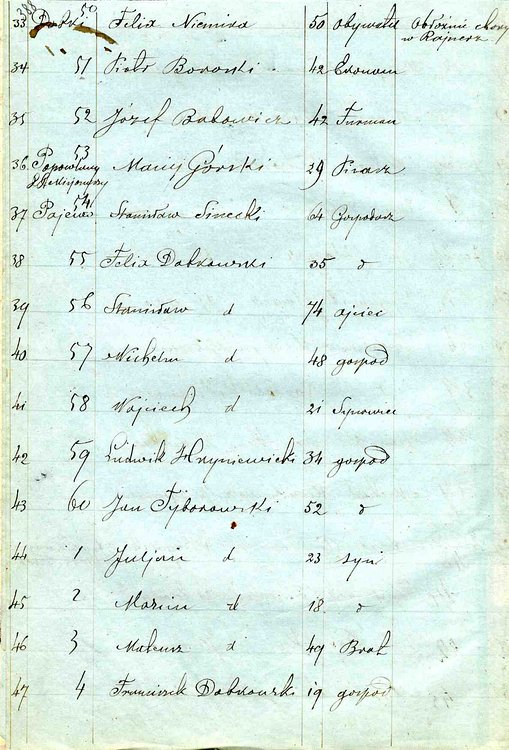 50
33 Felix Niemira 50 Obywatel Obłożnie chory
w Rajnerz
34 51 Piotr Borowski 42 Ekonom
35 52 Józef Bakowicz 42 Furman
53
36 Popowlany Maciej Górski 29 Pisarz
54
37 Pajewo Stanisław Sinecki 64 Gospodarz
38 55 Felix Dobrowski 35 d
39 56 Stanisław d 74 ojciec
40 57 Michał d 48 gospod
41 58 Wojciech d 21 Synowiec
42 59 Ludwik Hryniewicki 34 gospod
43 60 Jan Tyborowski 52 d
44 1 Juljan d 23 syn
45 2 Marcin d 18 d
46 3 Mateusz d 49 Brat
47 4 Franciszek Dobrowski 19 gospod